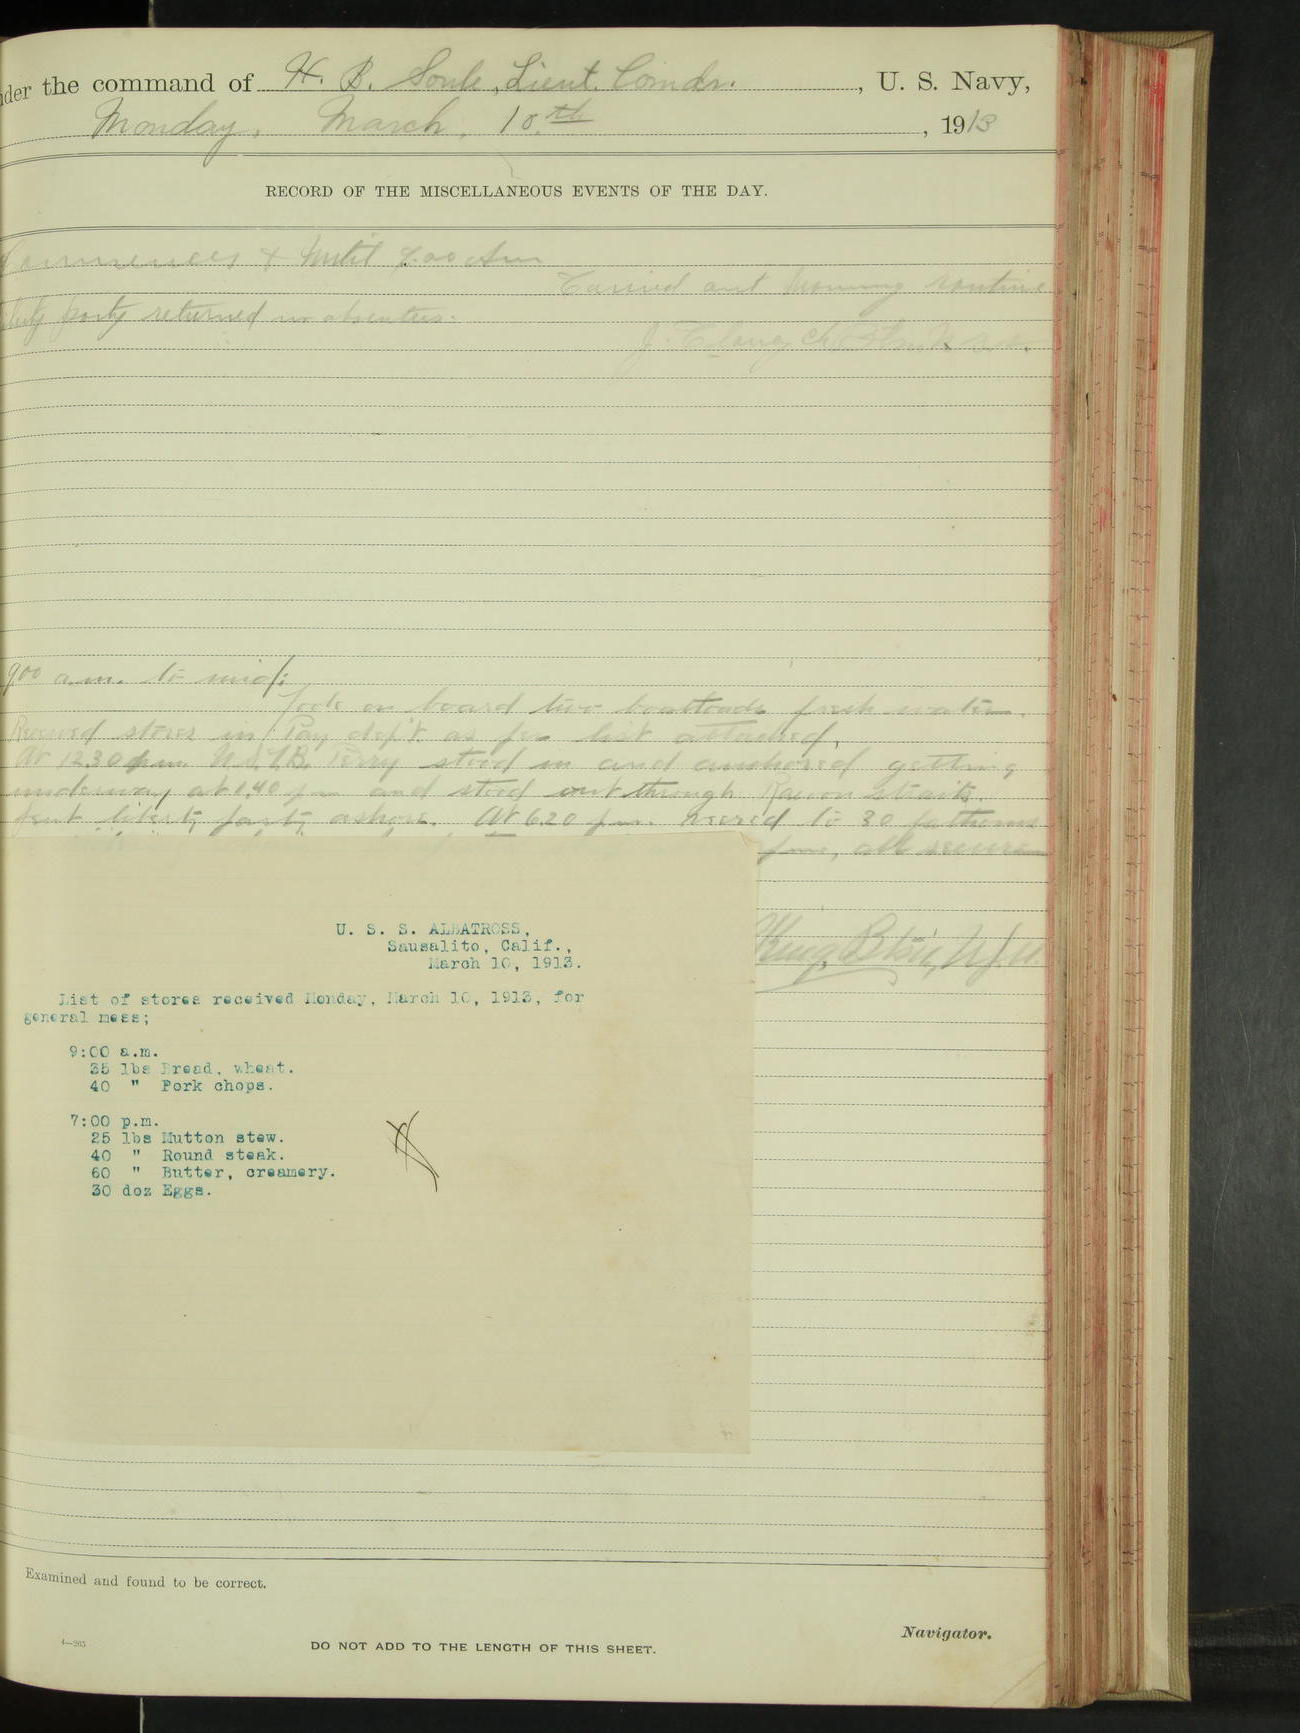 nder the command of H. B. Soule, Lieut. Comdr. , U. S. Navy,
Monday, March, 10.th , 1913
RECORD OF THE MISCELLANEOUS EVENTS OF THE DAY.
Commences & Until 9.00 Am
Carried out Morning routine
party returned no absentees.
9.00 a.m. to mid:
Took on board two boatloads fresh water.
Received stores in Pay dep't. as per list attached,
At 12.30 p.m. U.S.T.B. Perry stood in and anchored getting
underway at 1.40 p m and stood out through Racoon Straits.
Sent liberty party ashore. At 6.20 p.m. veered to 30 fathoms
all secure
U. S. S. ALBATROSS,
Sausalito, Calif.,
March 10, 1913.
List of stores received Monday, March 10, 1913, for
general mess;
9:00 a.m.
35 lbs Bread, wheat.
40 " Pork chops.
7:00 p.m.
25 lbs Mutton stew.
40 " Round steak.
60 " Butter, creamery.
30 doz Eggs.
Examined and found to be correct.
4—265
Navigator.
DO NOT ADD TO THE LENGTH OF THIS SHEET.